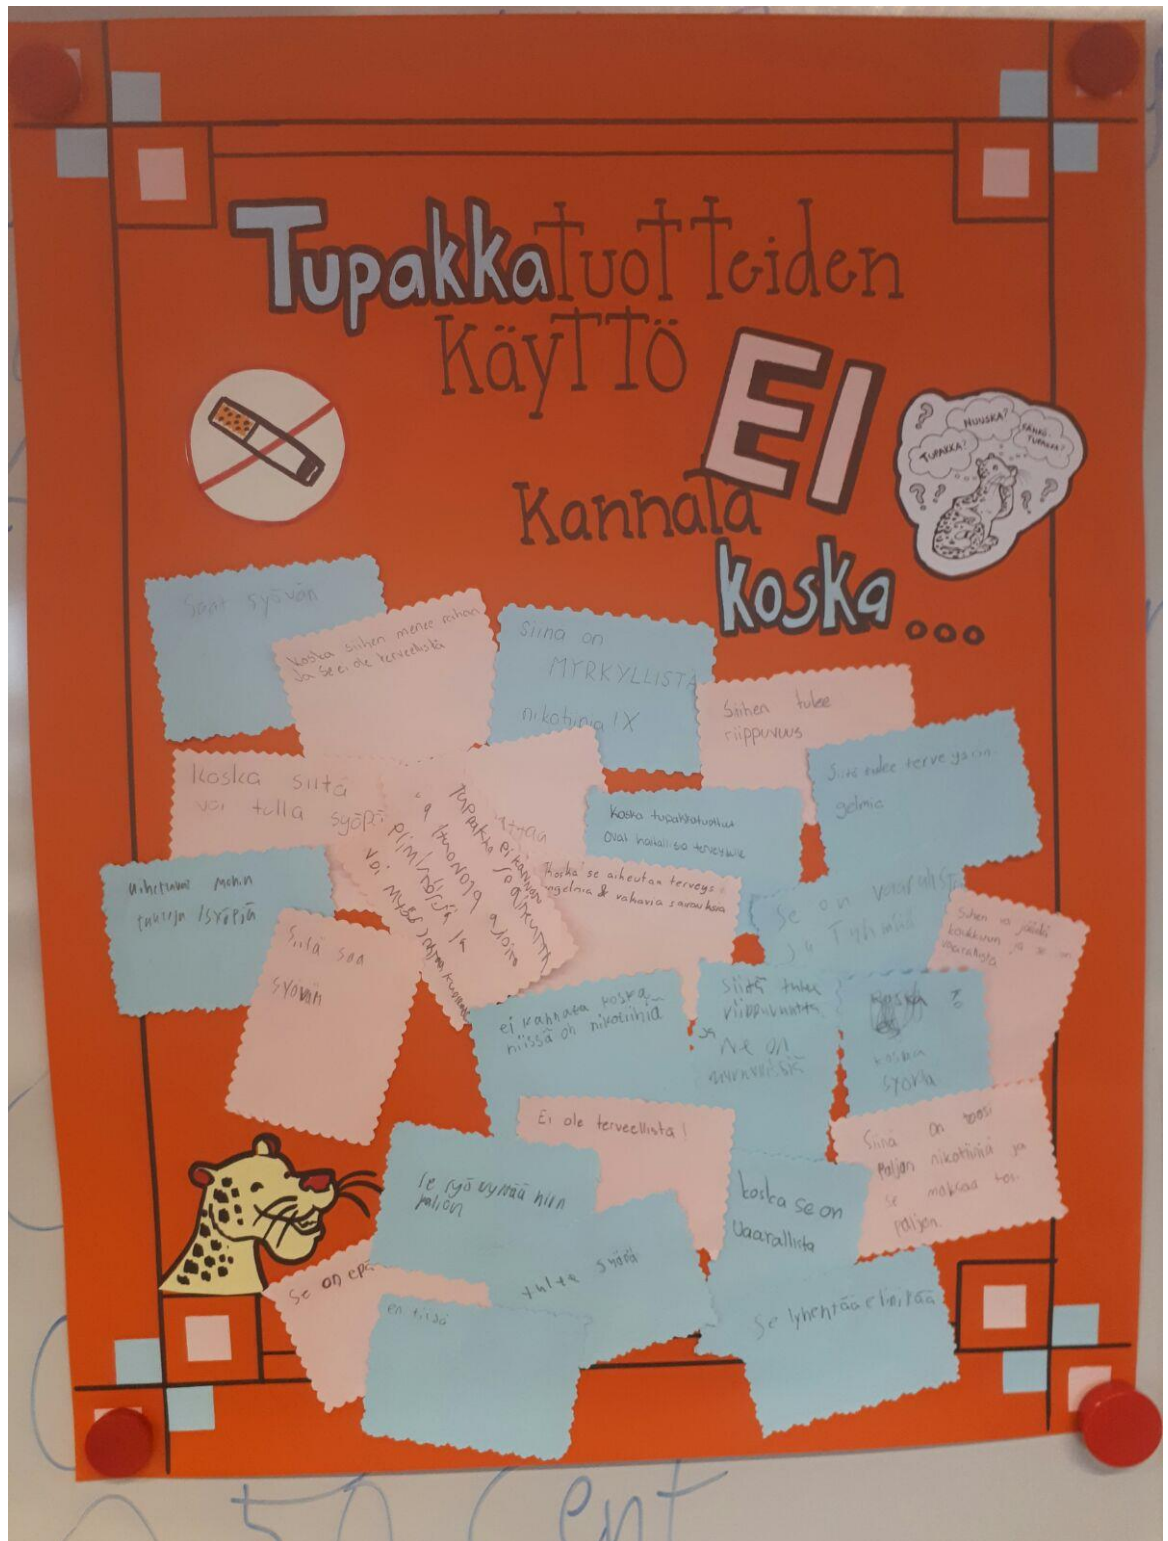 Tupakkatuotteiden
Käyttö
EI
Kannata
koska...
TUPAKKA?
NUUSKA?
SÄHKÖ-
TUPAKKA?
Saat syövän
Koska siihen menee rahan
Ja se ei ole terveelistä
Siinä on
MYRKYLLISTÄ
nikotiinia
Siihen tulee
riippuvuus
Siitä tulee terveyson-
gelmia
Koska siitä
voi tulla syöpä
Koska tupakkatuotteet
ovat haitallisia terveydelle
Tupakka ei kannata
voi myös
Koska se aiheuttaa terveys
ongelmia & vakavia sairauksia
Aiheuttavat monia
syöpiä
Siitä saa
syövän
Se on vaarallista
ja Tyhmää
Siihen voi jäädä
koukkuun ja se on
vaarallista
ei kannata koska
niissä on nikotiinia
Siitä tulee
riippuvuutta
ja
Ne on
myrkyllisiä
Koska ?
koska
syöpä
Ei ole terveellistä!
Siinä on tosi
paljon nikotiinia ja
se maksaa tosi
paljon.
koska se on
vaarallista
paljon
tulee syöpä
Se on epä
en tiedä
Se lyhentää elinikää
50 Cent